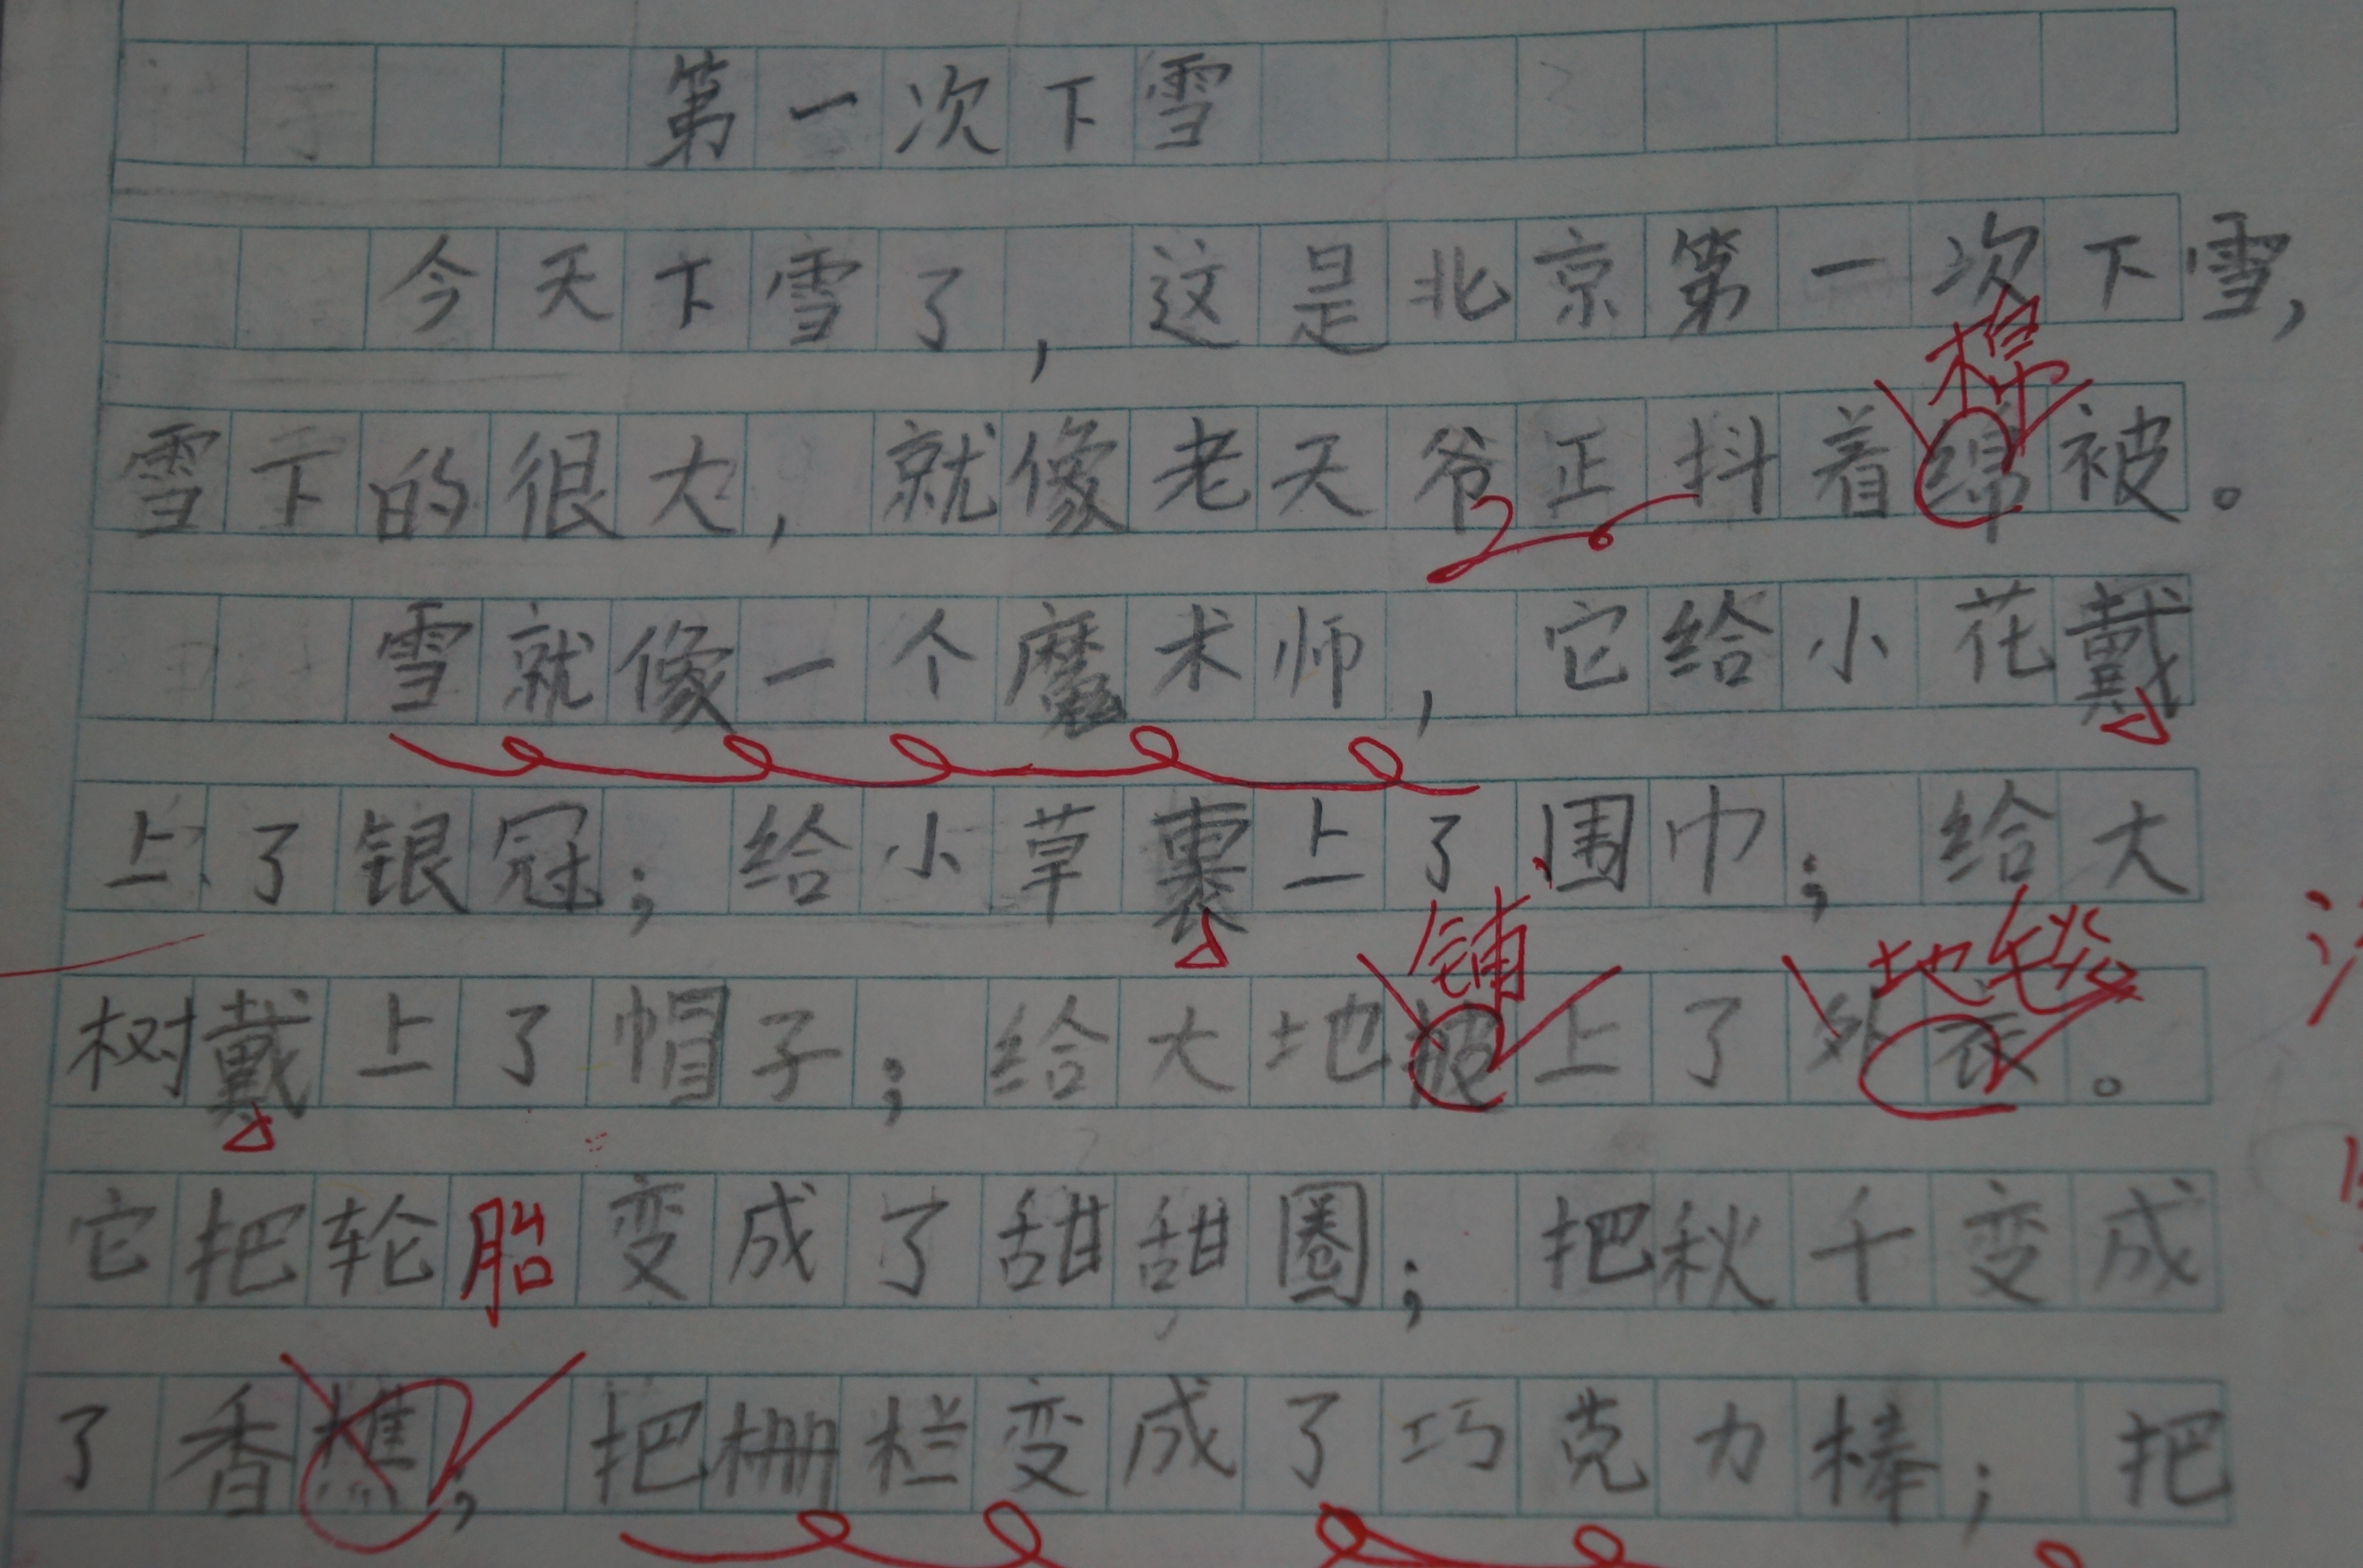 第一次下雪
今天下雪了，这是北京第一次下雪，
棉
雪下的很大，就像老天爷正抖着绵被。
雪就像一个魔术师，它给小花戴
上了银冠；给小草裹上了围巾；给大
铺 地毯
树戴上了帽子；给大地披上了外衣。
它把轮胎变成了甜甜圈；把秋千变成
了香；把栅栏变成了巧克力棒；把